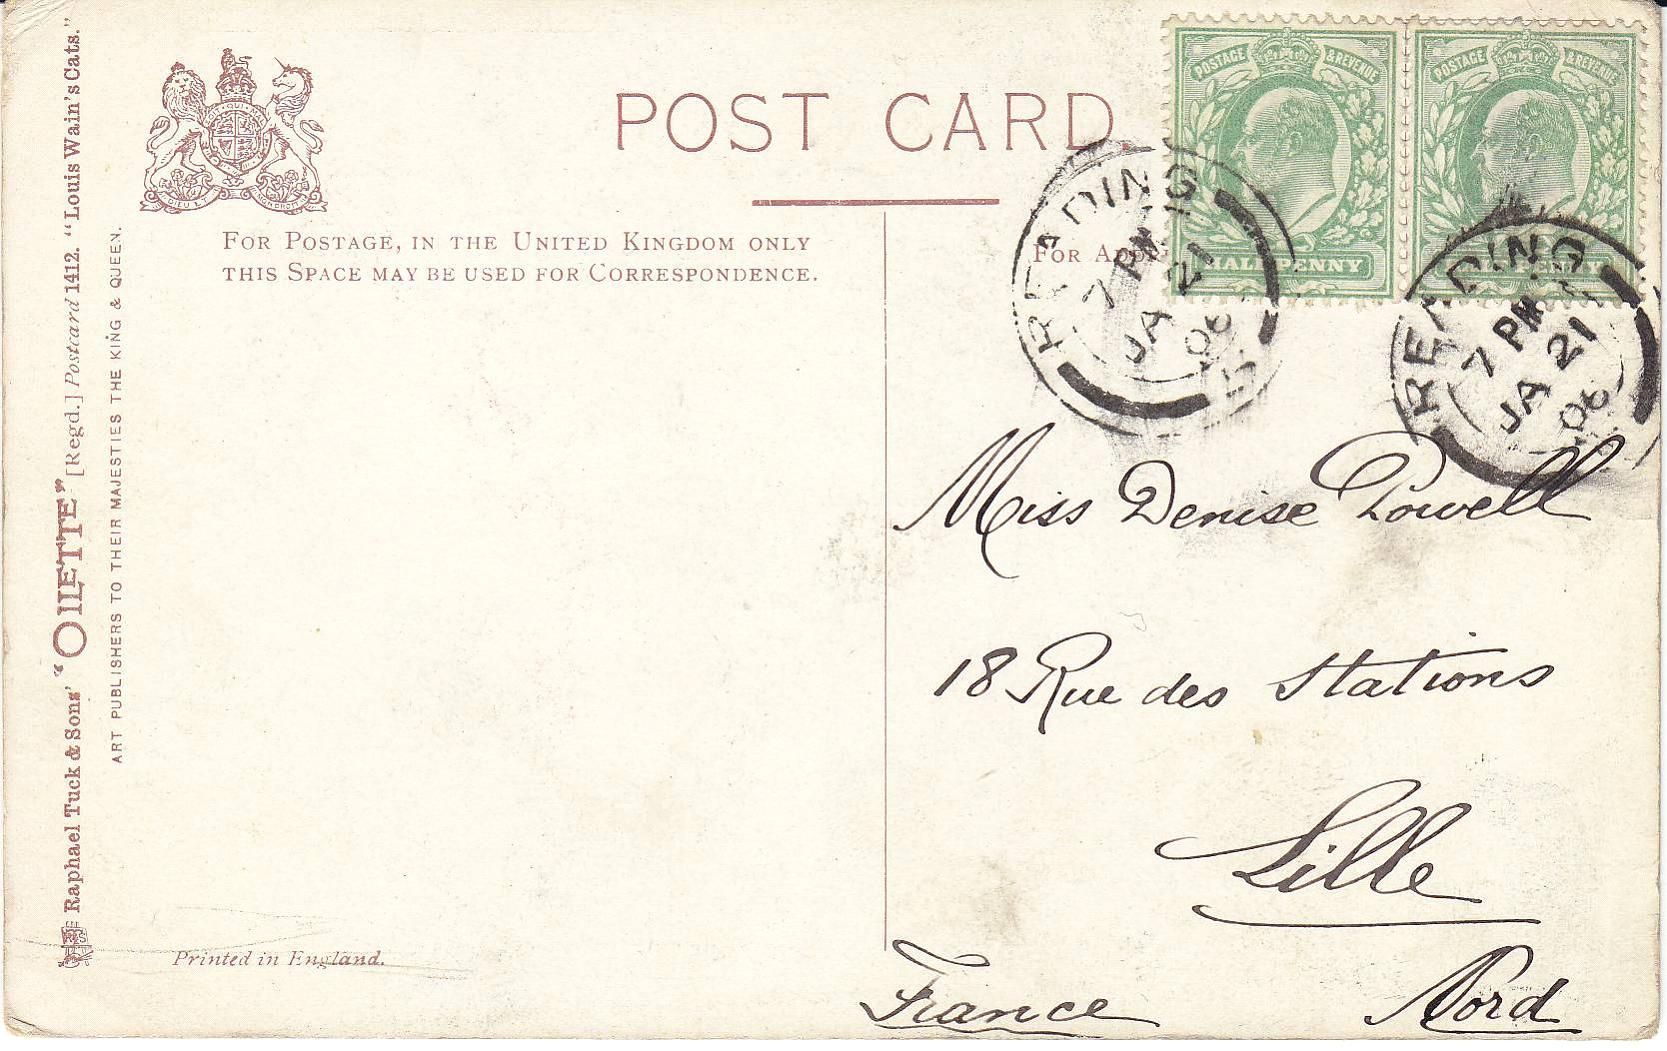 Raphael Tuck & Sons' "OILETTE" [Regd.] Postcard 1412. "Louis Wain's Cats."
ART PUBLISHERS TO THEIR MAJESTIES THE KING & QUEEN.
POST CARD.
FOR POSTAGE, IN THE UNITED KINGDOM ONLY
THIS SPACE MAY BE USED FOR CORRESPONDENCE.
FOR
POSTAGE & REVENUE
HALFPENNY
POSTAGE & REVENUE
HALFPENNY
READING
7 PM
JA 21
06
READING
7 PM
JA 21
06
Miss Denise Powell
18 Rue des Stations
Lille
France Nord
Printed in England.
DIEU ET